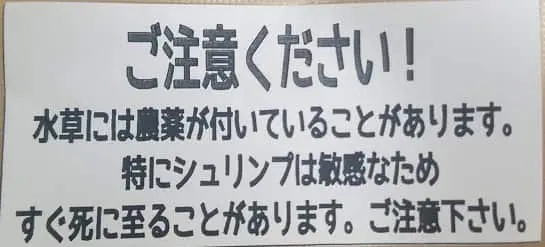 ご注意ください！
水草には農薬が付いていることがあります。
特にシュリンプは敏感なため
すぐ死に至ることがあります。ご注意下さい。